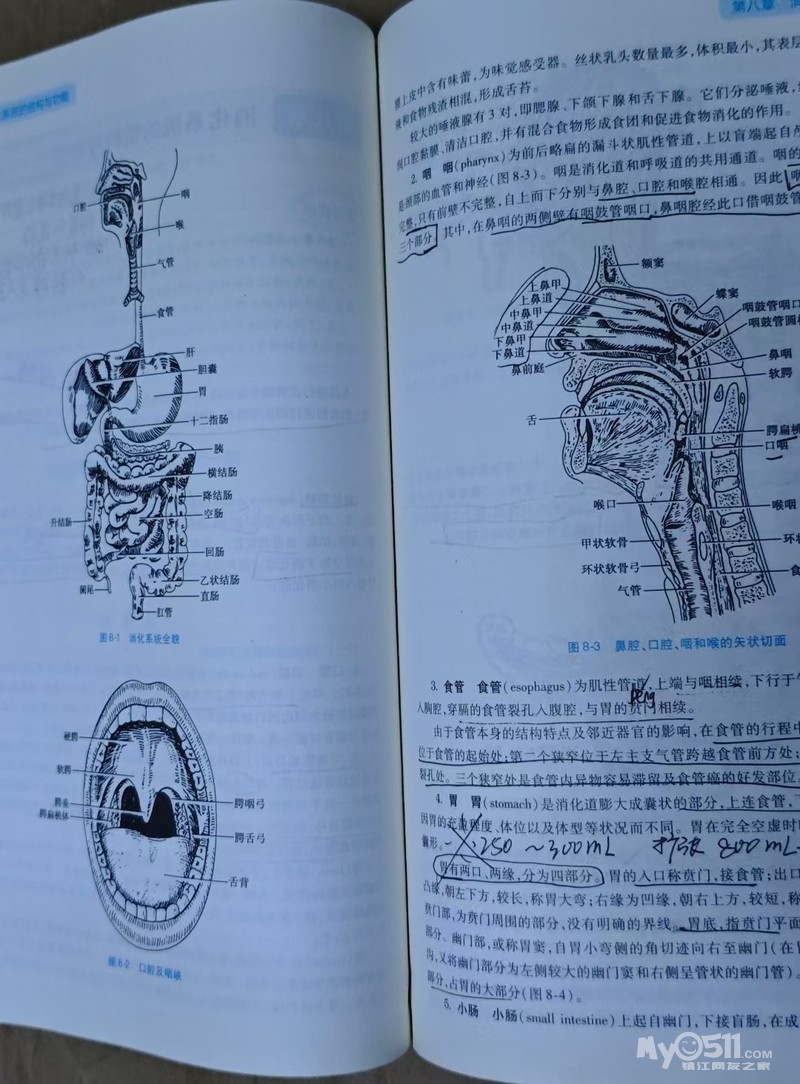 系统的结构与功能
口腔
咽
喉
气管
食管
肝
胆囊
胃
十二指肠
胰
横结肠
降结肠
升结肠
空肠
回肠
乙状结肠
阑尾
直肠
肛管
图8-1 消化系统全貌
硬腭
软腭
腭垂
腭扁桃体
腭咽弓
腭舌弓
舌背
图8-2 口腔及咽峡
第八章
上皮中含有味蕾,为味觉感受器。丝状乳头数量最多,体积最小,其表层
和食物残渣相混,形成舌苔。
较大的唾液腺有3对,即腮腺、下颌下腺和舌下腺。它们分泌唾液,
口腔黏膜、清洁口腔,并有混合食物形成食团和促进食物消化的作用。
2. 咽 咽(pharynx)为前后略扁的漏斗状肌性管道,上以盲端起自
是颈部的血管和神经(图8-3)。咽是消化道和呼吸道的共用通道。咽的
完整,只有前壁不完整,自上而下分别与鼻腔、口腔和喉腔相通。因此
三个部分。其中,在鼻咽的两侧壁有咽鼓管咽口,鼻咽腔经此口借咽鼓管
额窦
上鼻甲
上鼻道
蝶窦
中鼻甲
中鼻道
咽鼓管咽口
下鼻甲
咽鼓管圆
下鼻道
鼻前庭
鼻咽
软腭
舌
腭扁桃
口咽
喉口
喉咽
甲状软骨
环状
环状软骨弓
气管
图8-3 鼻腔、口腔、咽和喉的矢状切面
3. 食管 食管(esophagus)为肌性管道,上端与咽相续,下行于
beng
人胸腔,穿膈的食管裂孔入腹腔,与胃的贲门相续。
由于食管本身的结构特点及邻近器官的影响,在食管的行程中
位于食管的起始处;第二个狭窄位于左主支气管跨越食管前方处;
裂孔处。三个狭窄处是食管内异物容易滞留及食管癌的好发部位。
4. 胃 胃(stomach)是消化道膨大成囊状的部分,上连食管,下
因胃的充盈程度、体位以及体型等状况而不同。胃在完全空虚时
囊形。
250 ~300mL 800mL
胃有两口、两缘,分为四部分。胃的入口称贲门,接食管;出口
凸缘,朝左下方,较长,称胃大弯;右缘为凹缘,朝右上方,较短,称
贲门部,为贲门周围的部分,没有明确的界线。胃底,指贲门平面
部分。幽门部,或称胃窦,自胃小弯侧的角切迹向右至幽门(在
内,又将幽门部分为左侧较大的幽门窦和右侧呈管状的幽门管)。
部分,占胃的大部分(图8-4)。
5. 小肠 小肠(small intestine)上起自幽门,下接盲肠,在成
My0511.COM
镇江网友之家